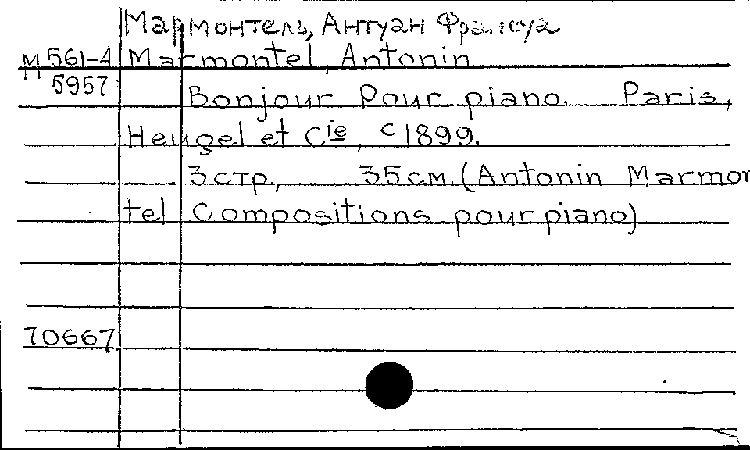 Мармонтель, Антуан Франсуа
М 561-4 Marmontel, Antonin
5957
Bonjour Pour piano. Paris,
Heugel et Cie, c 1899.
3 стр., 35 см. (Antonin Marmon
tel Compositions pour piano)
70667